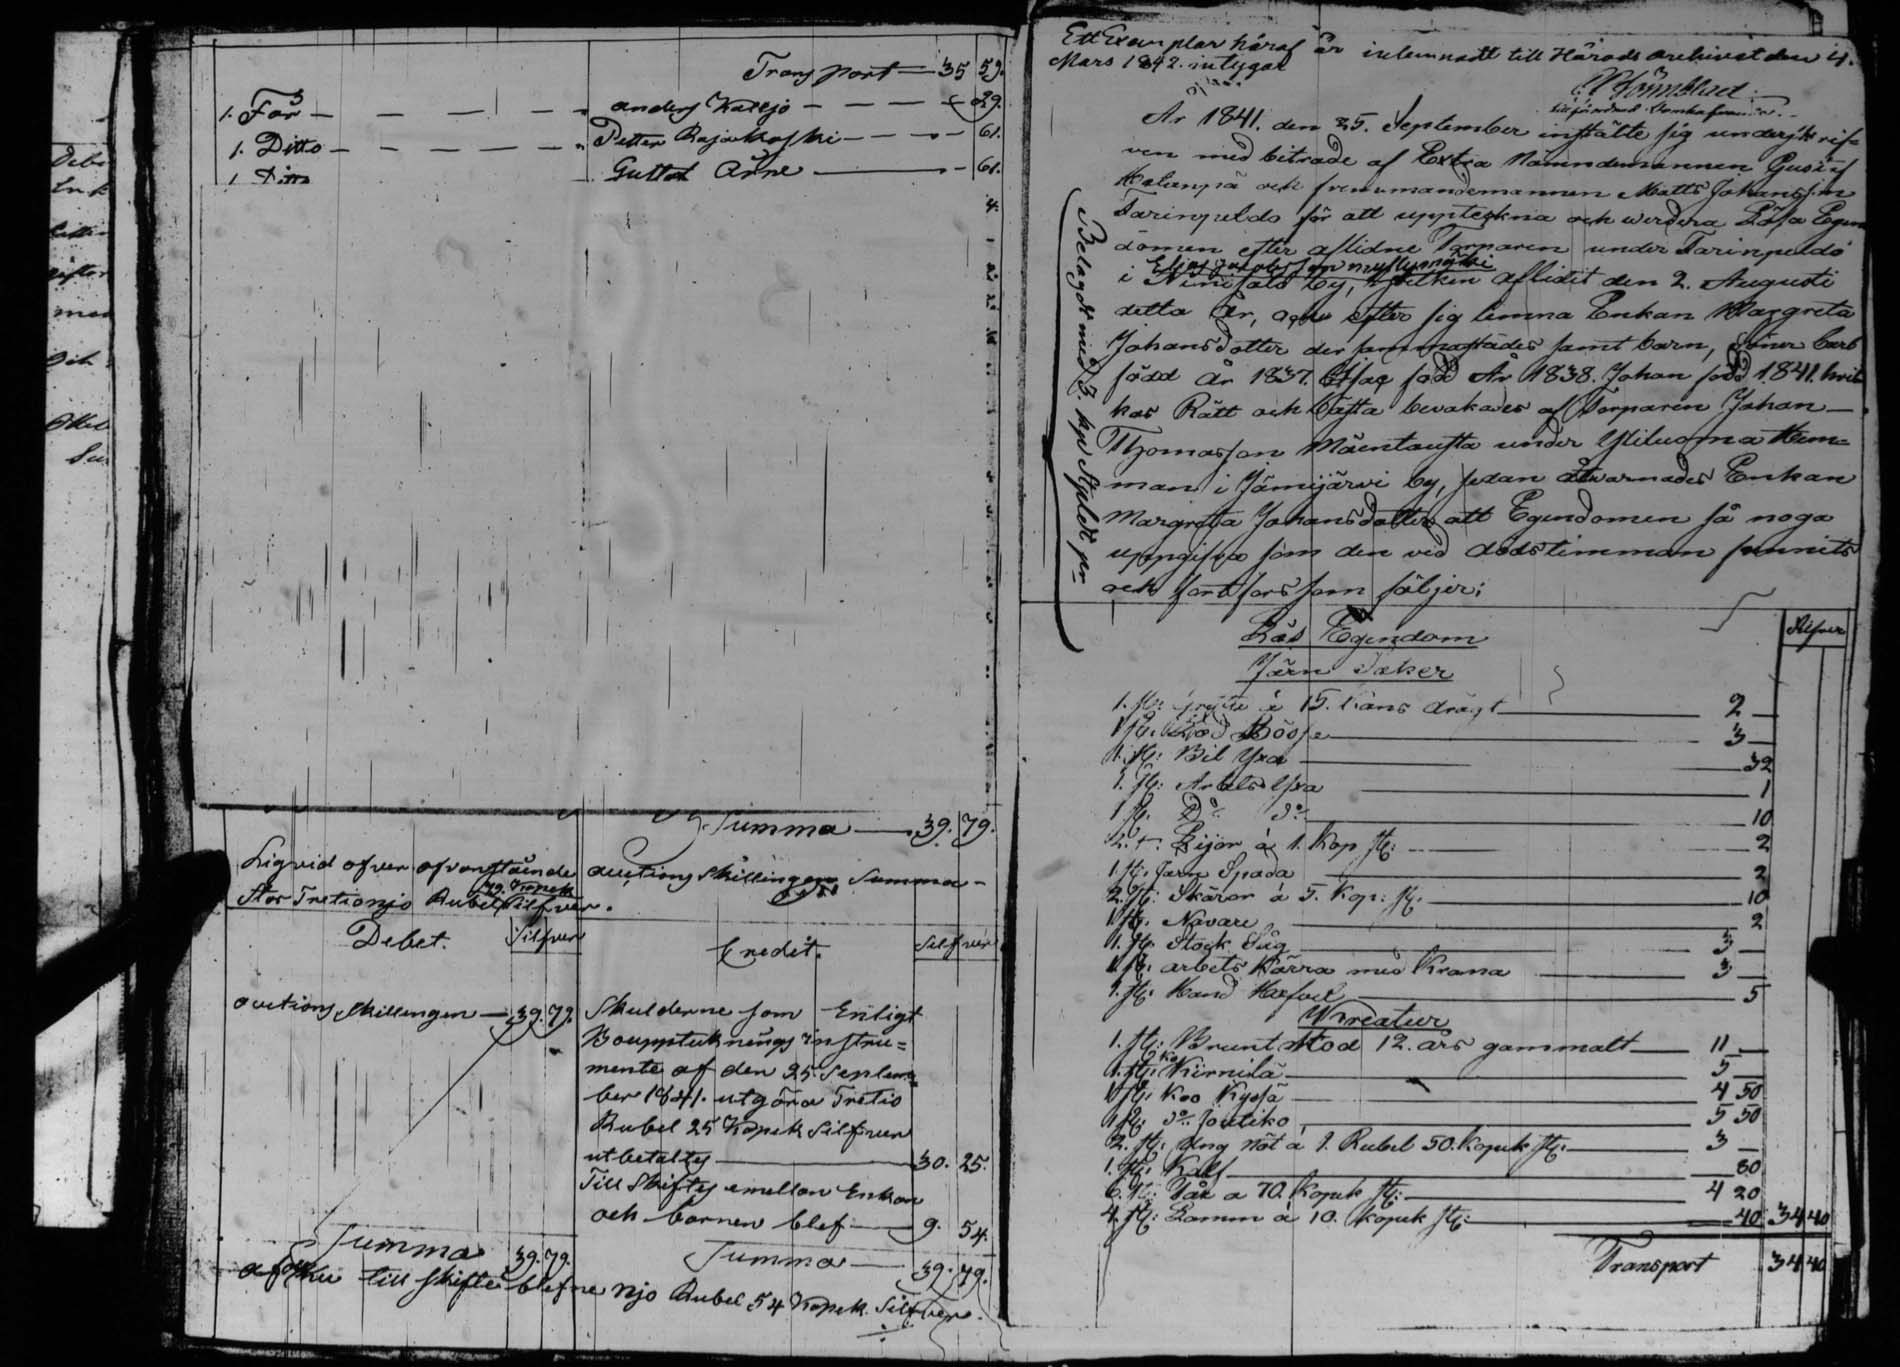 Transport — 35 59.
1. Får — — — — anders — — — 29.
1. Ditto — — — — " Petter Rajakoski — — — 61.
1 Ditto Gustaf — 61.
Summa — 39. 79.
Liqvid öfver ofvanstående auctions skillingens Summa
Stor Trettionjo Rubel 79. Kopek Silfver.
Debet. Silfver Credit. Silfver
auctions skillingen — 39. 79. Skulderne som Enligt
Bouppteknings instru=
mente af den 25. Septem=
ber 1841. utgöra Tretio
Rubel 25 Kopek Silfver
utbetaltes — 30. 25.
Till Skiftes emellan Enkan
och barnen blef — 9. 54.
Summa 39. 79. Summa — 39. 79.
till skifte blefne Njo Rubel 54 Kopek Silfver.
Ett Exemplar häraf är inlemnadt till Härads archivet den 4.
Mars 1842. intygar
År 1841. den 25. September instälte sig underskrif=
ven med biträde af Extra Nämndemannen Gustaf
och Matts Johansson
för att uppteckna och werdera Lösa Egen
domen efter aflidne Torparen under
Elias Jacobsson Myllymäki
i by, hvilken aflidit den 2. Augusti
detta År, och efter sig lemna Enkan Margreta
Johansdotter der sammastädes samt barn, Söner Carl
född år 1837. född År 1838. Johan född 1841. hvil
kas Rätt och bästa bevakades af Torparen Johan —
Thomasson under Yliluoma Hem=
man i Jämijärvi by, sedan åtvarnades Enkan
Margreta Johansdotter att Egendomen så noga
uppgifva som den vid dödstimman funnits
och som följer;
Belagdt med 3. kop Stpldt ppr
Lös Egendom Silfver
Järn Saker
1. st: à 15. Kans drägt — 2 —
1 st: Bössa — 3 —
1. st: Bil Yxa — 32
1. st: Arbets Yxa — 1
1 st. Do: do: — 10
2. st. Lijor á 1. Kop st: — 2
1. st: Jern Spada — 2
2. st: Skäror á 5. Kop: st: — 10
1 st: Navare — 2
1. st: Stock Såg — 3 —
1. st: arbets Kärra med Krana — 3 —
1. st: Hand — 5
Kreatur
1. st: Brunt Stod 12. års gammalt — 11 —
1. st: Ko Kirnilä — 5 —
1 st: Koo — 4 50
1 st. do: — 5 50
2. st: Ung Nöt á 1. Rubel 50. Kopek st: — 3 —
1. st: Kalf — 80
6. st: Får a 70. Kopek st: — 4 20
4. st: Lamm á 10. Kopek st: — 40 34 40
Transport 34 40